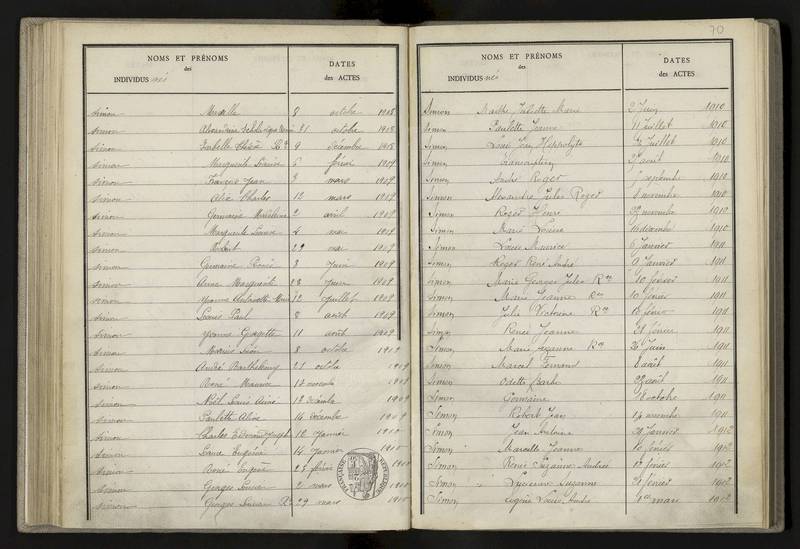 NOMS ET PRÉNOMS
des
INDIVIDUS nés
DATES
des ACTES
Simon Marcelle 8 octobre 1908
Simon 31 octobre 1908
Simon Isabelle 9 décembre 1908
Simon Marguerite 5 février 1909
Simon François Jean 3 mars 1909
Simon Alix Charles 12 mars 1909
Simon Germaine 2 avril 1909
Simon Marguerite Louise 4 mai 1909
Simon Robert 29 mai 1909
Simon Germaine Renée 3 juin 1909
Simon Anne Marguerite 28 juin 1909
Simon Yvonne 12 juillet 1909
Simon Louis Paul 8 août 1909
Simon Yvonne Georgette 11 août 1909
Simon 8 octobre 1909
Simon André Barthélemy 21 octobre 1909
Simon René Maurice 17 novembre 1909
Simon Noël Louis Aimé 12 décembre 1909
Simon Paulette Alice 14 décembre 1909
Simon Charles Edmond Joseph 10 janvier 1910
Simon Eugénie 14 janvier 1910
Simon René Eugène 25 février 1910
Simon Georges Lucien 2 mars 1910
Simon Georges Lucien Rn 29 mars 1910
70
NOMS ET PRÉNOMS
des
INDIVIDUS nés
DATES
des ACTES
Simon Marthe Juliette Marie 2 Juin 1910
Simon Paulette Jeanne 11 Juillet 1910
Simon Louis Léon Hippolyte 26 Juillet 1910
Simon transcription août 1910
Simon André Roger septembre 1910
Simon Alexandre Jules Roger 8 novembre 1910
Simon Roger Henri 22 novembre 1910
Simon Marie Louise 10 décembre 1910
Simon Louis Maurice 6 Janvier 1911
Simon Roger René André 9 Janvier 1911
Simon Marie Georges Jules Rn 10 février 1911
Simon Marie Jeanne Rn 10 février 1911
Simon Julie Rn février 1911
Simon Renée Jeanne 21 février 1911
Simon Marie Suzanne Rn 26 Juin 1911
Simon Marcel Fernand 8 août 1911
Simon Odette 22 août 1911
Simon Germaine 18 octobre 1911
Simon Robert Jean 14 novembre 1911
Simon Jean Antoine 29 Janvier 1912
Simon Marcelle Jeanne 10 février 1912
Simon Renée Suzanne Andrée 12 février 1912
Simon Lucienne Suzanne 21 février 1912
Simon Eugène Louis André 1er mars 1912